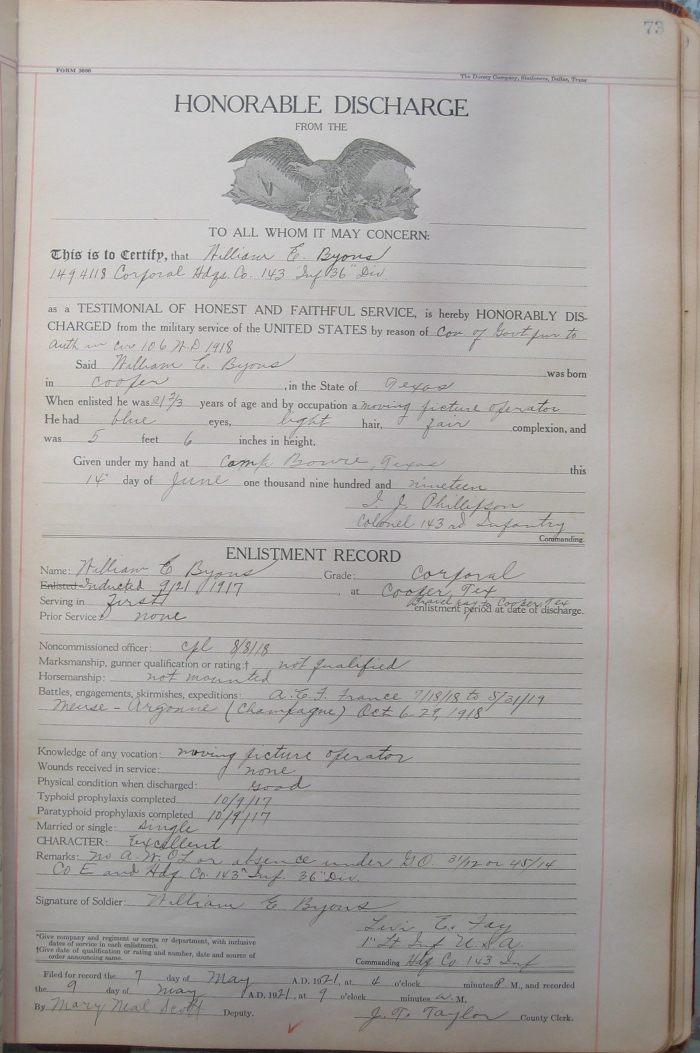 73
FORM 3000
The Dorsey Company, Stationers, Dallas, Texas
HONORABLE DISCHARGE
FROM THE
TO ALL WHOM IT MAY CONCERN:
This is to Certify, that William E. Byons
1494118 Corporal Hdqs. Co. 143 Inf 36" Div
as a TESTIMONIAL OF HONEST AND FAITHFUL SERVICE, is hereby HONORABLY DIS-
CHARGED from the military service of the UNITED STATES by reason of Con of Govt pur to
auth in cir 106 W.D 1918
Said William E. Byons was born
in Cooper, in the State of Texas
When enlisted he was 21 2/3 years of age and by occupation a moving picture operator
He had blue eyes, light hair, fair complexion, and
was 5 feet 6 inches in height.
Given under my hand at Camp Bowie, Texas this
14" day of June one thousand nine hundred and nineteen
I. J. Phillipson
Colonel 143rd Infantry
Commanding.
ENLISTMENT RECORD
Name: William E Byons Grade: Corporal
Enlisted Inducted 9/21 1917, at Cooper, Tex
Travel pay to Cooper Tex
Serving in first enlistment period at date of discharge.
Prior Service: none
Noncommissioned officer: Cpl 8/8/18
Marksmanship, gunner qualification or rating:† not qualified
Horsemanship: not mounted
Battles, engagements, skirmishes, expeditions: A.E.F. France 7/18/18 to 5/31/19
Meuse - Argonne (Champagne) Oct 6-29, 1918
Knowledge of any vocation: moving picture operator
Wounds received in service: none
Physical condition when discharged: Good
Typhoid prophylaxis completed 10/9/17
Paratyphoid prophylaxis completed 10/9/17
Married or single: Single
CHARACTER: Excellent
Remarks: No A.W.O.L or absence under G.O. 31/12 or 45/14
Co E and Hdq Co 143" Inf 36" Div
Signature of Soldier: William E Byons
Levi E. Fay
1" Lt Inf U.S.A.
Commanding Hdq Co 143 Inf
*Give company and regiment or corps or department, with inclusive
dates of service in each enlistment.
†Give date of qualification or rating and number, date and source of
order announcing same.
Filed for record the 7 day of May A.D. 1921, at 4 o'clock minutes P. M., and recorded
the 9 day of May A.D. 1921, at 9 o'clock minutes a. M.
By Mary Neal Scott Deputy. J. T. Taylor County Clerk.